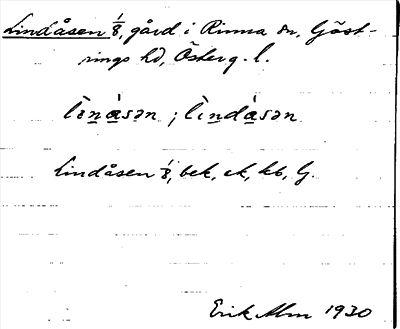 Lindåsen 1/8, gård i Rinna sn, Göst-
rings hd, Österg. l.
lìnåsən ; lìndåsən
Lindåsen 1/8, bek, ek, kb, G.
Erik Alm 1930